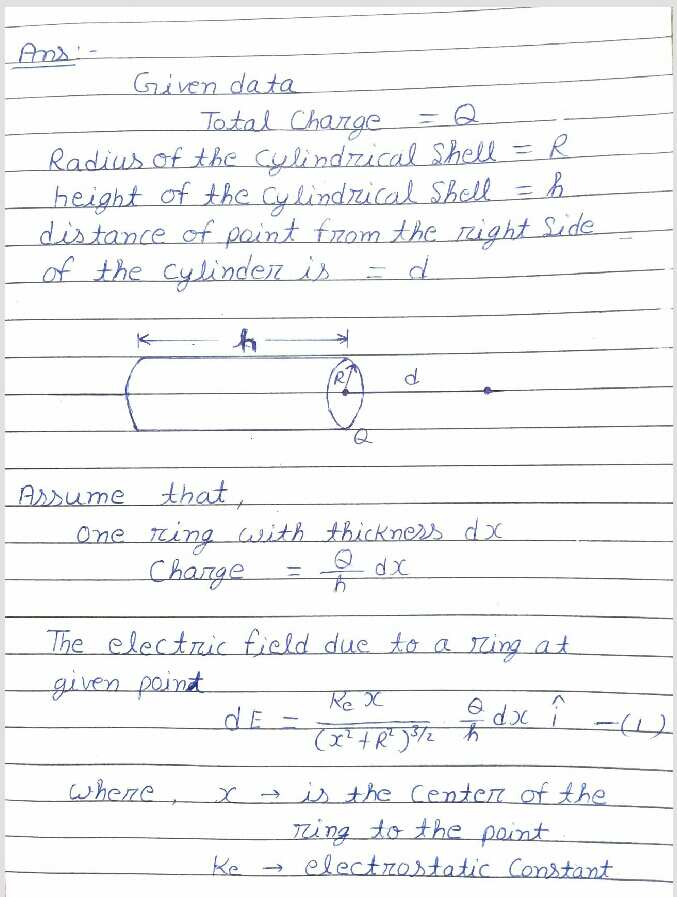 Ans :-
Given data
Total Charge = Q
Radius of the Cylindrical Shell = R
height of the Cylindrical Shell = h
distance of point from the right Side
of the cylinder is = d
h
R
d
Q
Assume that,
one ring with thickness dx
Charge = Q/h dx
The electric field due to a ring at
given point
dE = Ke x / (x² + R²)^3/2 Q/h dx î —(1)
where, x → is the Center of the
ring to the point
Ke → electrostatic Constant